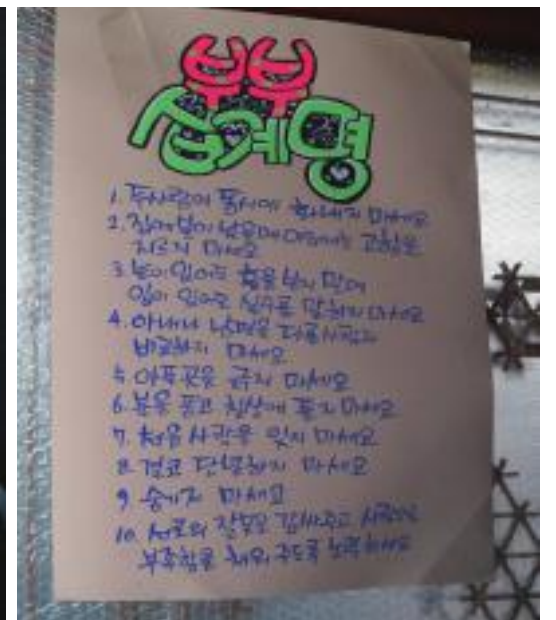 부부
십계명
1. 두사람이 동시에 화내지 마세요
2. 집에 불이 났을때 이외에는 고함을
지르지 마세요
3. 눈이 있어도 흠을 보지 말며
입이 있어도 실수를 말하지 마세요
4. 아내나 남편을 다른사람과
비교하지 마세요
5. 아픈 곳을 긁지 마세요
6. 분을 품고 침상에 들지 마세요
7. 처음 사랑을 잊지 마세요
8. 결코 단념하지 마세요
9. 숨기지 마세요
10. 서로의 잘못을 감싸주고 사랑으로
부족함을 채워 주도록 노력하세요